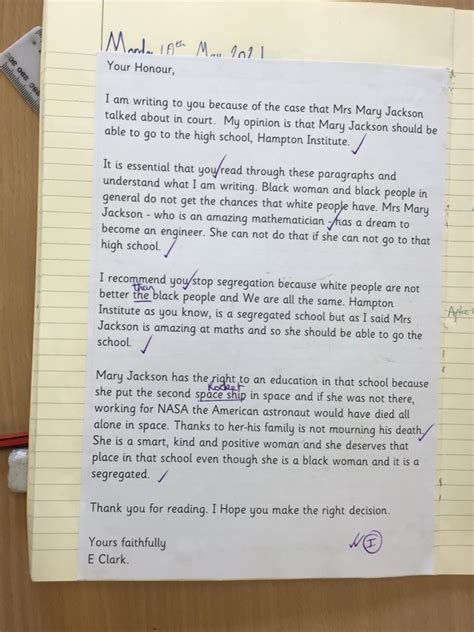 Monday 10th May 2021
Your Honour,
I am writing to you because of the case that Mrs Mary Jackson
talked about in court.  My opinion is that Mary Jackson should be
able to go to the high school, Hampton Institute.
It is essential that you read through these paragraphs and
understand what I am writing. Black woman and black people in
general do not get the chances that white people have. Mrs Mary
Jackson - who is an amazing mathematician - has a dream to
become an engineer. She can not do that if she can not go to that
high school.
I recommend you stop segregation because white people are not
than
better the black people and We are all the same. Hampton
Institute as you know, is a segregated school but as I said Mrs
Jackson is amazing at maths and so she should be able to go the
school.
Mary Jackson has the right to an education in that school because
Rocket
she put the second space ship in space and if she was not there,
working for NASA the American astronaut would have died all
alone in space. Thanks to her-his family is not mourning his death.
She is a smart, kind and positive woman and she deserves that
place in that school even though she is a black woman and it is a
segregated.
Thank you for reading. I Hope you make the right decision.
Yours faithfully
I
E Clark.